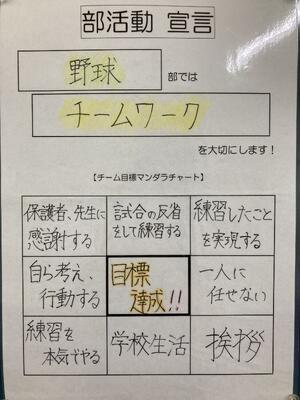 部活動 宣言
野球
部では
チームワーク
を大切にします!
【チーム目標マンダラチャート】
保護者、先生に
感謝する
試合の反省
をして練習する
練習したこと
を実現する
自ら考え、
行動する
目標
達成!!
一人に
任せない
練習を
本気でやる
学校生活
挨拶